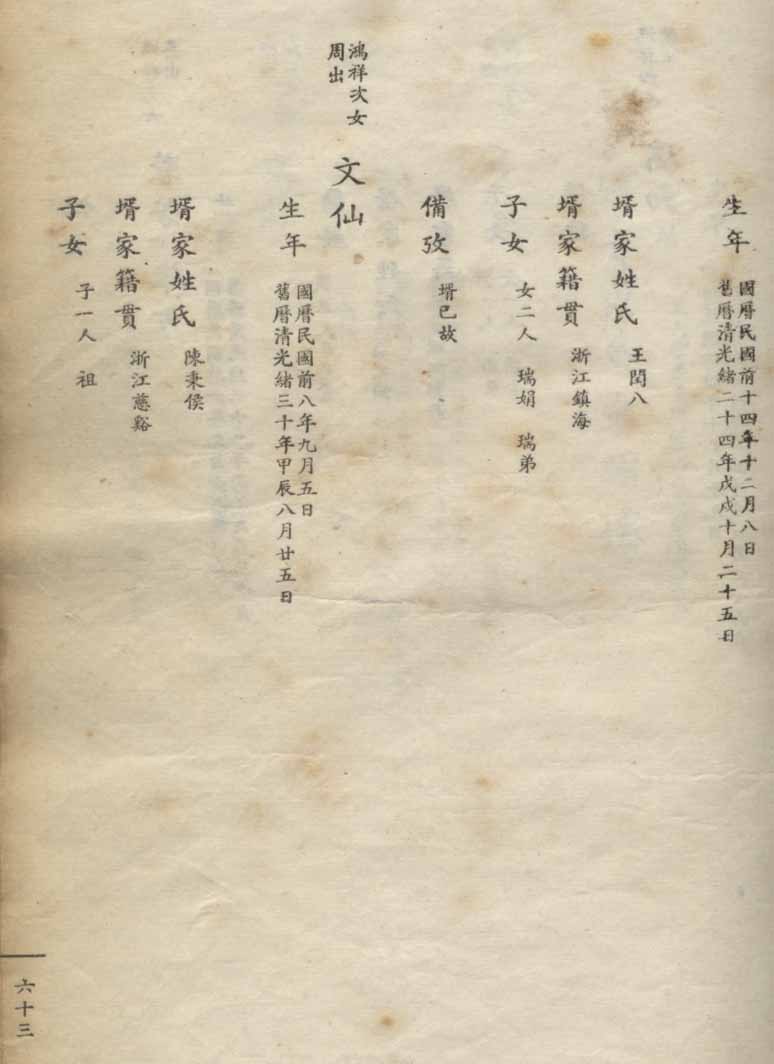 生年
國曆民國前十四年十二月八日
舊曆清光緒二十四年戊戌十月二十五日
壻家姓氏 王閏八
壻家籍貫 浙江鎮海
子女 女二人 瑞娟 瑞弟
備攷 壻已故
鴻祥次女
周出
文仙
生年
國曆民國前八年九月五日
舊曆清光緒三十年甲辰八月廿五日
壻家姓氏 陳秉侯
壻家籍貫 浙江慈谿
子女 子一人 祖
六十三